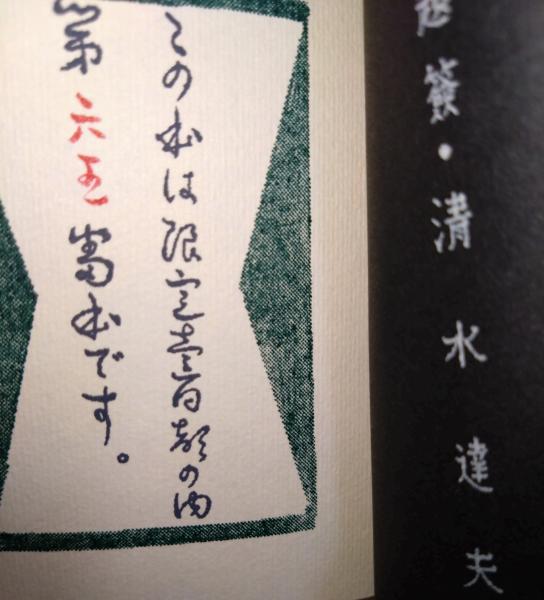 題簽・清水達夫
この本は限定壹百部の内
第六五番本です。